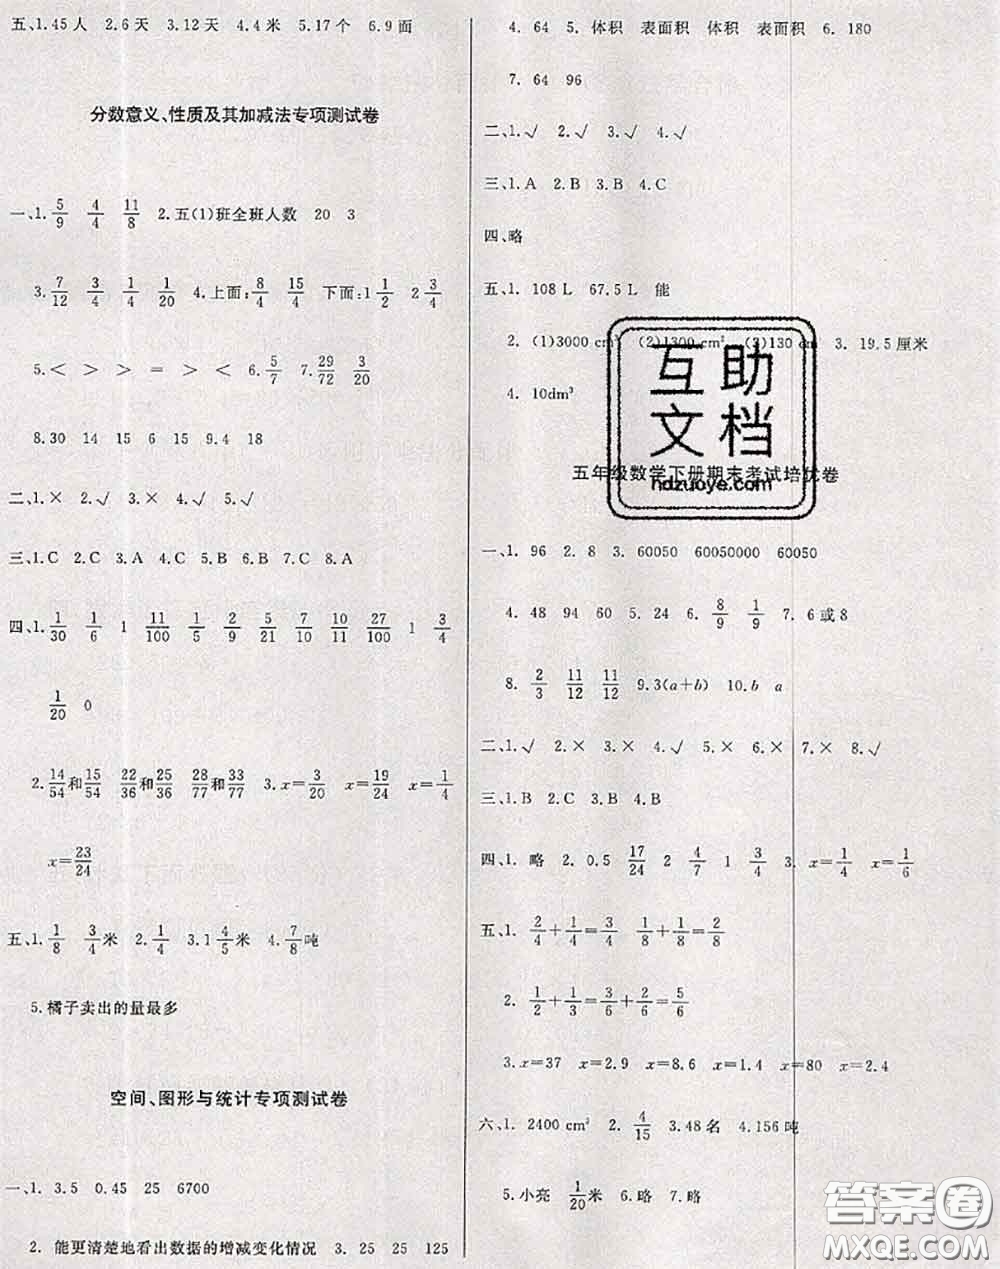 五、1.45人 2.6天 3.12天 4.4米 5.17个 6.9面
分数意义、性质及其加减法专项测试卷
一、1. 5/9 4/4 11/8 2.五(1)班全班人数 20 3
3. 7/12 3/4 1/4 1/20 4.上面: 8/4 15/4 下面: 1 1/2 2 3/4
5.< > > = > < 6. 5/7 7. 29/72 3/20
8.30 14 15 6 15 9.4 18
二、1.× 2.√ 3.× 4.√ 5.√
三、1.C 2.C 3.A 4.C 5.B 6.B 7.C 8.A
四、1. 1/30 1/6 1 11/100 1/5 2/9 5/21 7/10 10/11 27/100 1 3/4
1/20 0
2. 14/54和15/54 22/36和25/36 28/77和33/77 3.x=3/20 x=19/24 x=1/4
x=23/24
五、1. 1/8 3/4米 2. 1/4 3.1 4/5米 4. 7/8吨
5.橘子卖出的量最多
空间、图形与统计专项测试卷
一、1. 3.5 0.45 25 6700
2. 能更清楚地看出数据的增减变化情况 3. 25 25 125
4. 64 5. 体积 表面积 体积 表面积 6. 180
7. 64 96
二、1.√ 2.√ 3.√ 4.√
三、1.A 2.B 3.B 4.C
四、略
五、1. 108 L 67.5 L 能
2. (1)3000 cm³ (2)1300 cm² (3)130 cm 3. 19.5厘米
4. 10dm³
五年级数学下册期末考试培优卷
一、1. 96 2. 8 3. 60050 60050000 60050
4. 48 94 60 5. 24 6. 8/9 1/9 7. 6或8
8. 2/3 11/12 11/12 9.3(a+b) 10.b a
二、1.√ 2.× 3.× 4.√ 5.× 6.× 7.× 8.√
三、1.B 2.C 3.B 4.B
四、1. 略 2. 0.5 17/24 2 4/7 1 3/4 3. x=1/4 x=1/6
五、1. 2/4+1/4=3/4 1/8+1/8=2/8
2. 1/2+1/3=3/6+2/6=5/6
3.x=37 x=2.9 x=8.6 x=1.4 x=80 x=2.4
六、1. 2400 cm² 2. 4/15 3.48名 4.156吨
5.小亮 1/20米 6.略 7.略
互助
文档
hdzuoye.com
答案圈
MXQE.COM